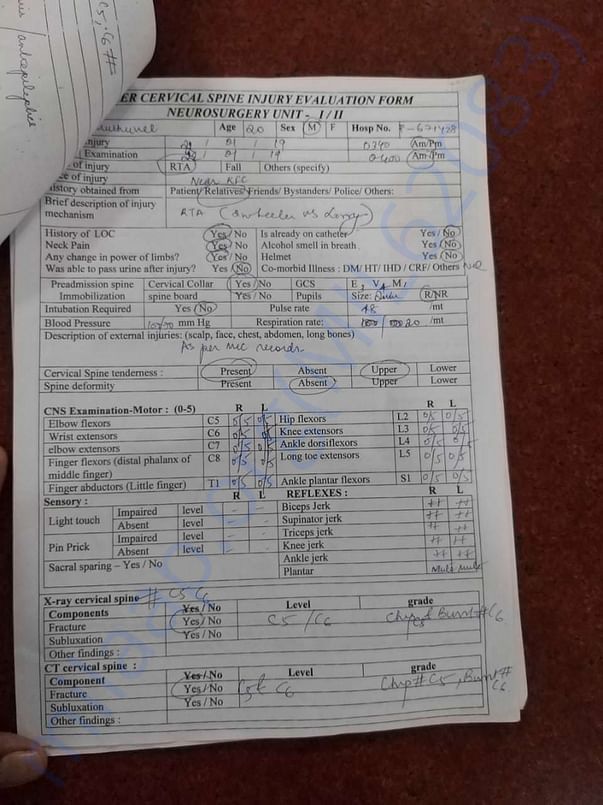 C5, C6 #
antiepileptics
ER CERVICAL SPINE INJURY EVALUATION FORM
NEUROSURGERY UNIT - I / II
Age 20 Sex M F Hosp No.
njury / 01 / 19 0340 Am/Pm
Examination / 01 / 19 0400 Am/Pm
of injury RTA Fall Others (specify)
ce of injury Near KFC
History obtained from Patient/Relatives/Friends/ Bystanders/ Police/ Others:
Brief description of injury mechanism RTA ( wheeler vs Lorry)
History of LOC Yes/No Is already on catheter Yes/No
Neck Pain Yes/No Alcohol smell in breath Yes/No
Any change in power of limbs? Yes/No Helmet Yes/No
Was able to pass urine after injury? Yes/No Co-morbid Illness : DM/ HT/ IHD / CRF/ Others
Preadmission spine Cervical Collar Yes / No GCS E, V, M,
Immobilization spine board Yes / No Pupils Size: R/NR
Intubation Required Yes / No Pulse rate 48 /mt
Blood Pressure mm Hg Respiration rate: /mt
Description of external injuries: (scalp, face, chest, abdomen, long bones)
As per MLC records
Cervical Spine tenderness : Present Absent Upper Lower
Spine deformity Present Absent Upper Lower
CNS Examination-Motor : (0-5) R L R L
Elbow flexors C5 0/5 0/5 Hip flexors L2 0/5 0/5
Wrist extensors C6 0/5 0/5 Knee extensors L3 0/5 0/5
elbow extensors C7 0/5 0/5 Ankle dorsiflexors L4 0/5 0/5
Finger flexors (distal phalanx of middle finger) C8 0/5 0/5 Long toe extensors L5 0/5 0/5
Finger abductors (Little finger) T1 0/5 0/5 Ankle plantar flexors S1 0/5 0/5
Sensory : R L REFLEXES : R L
Light touch Impaired level – – Biceps Jerk ++ ++
Absent level – – Supinator jerk ++ ++
Triceps jerk ++ ++
Pin Prick Impaired level – – Knee jerk ++ ++
Absent level – – Ankle jerk ++ ++
Sacral sparing – Yes / No Plantar Mute Mute
X-ray cervical spine # C5 C6
Components Yes / No Level grade
Fracture Yes / No C5 / C6 Chip # C5 Burst # C6
Subluxation Yes / No
Other findings :
CT cervical spine :
Component Yes / No Level grade
Fracture Yes / No C5 & C6 Chip # C5, Burst # C6
Subluxation Yes / No
Other findings :